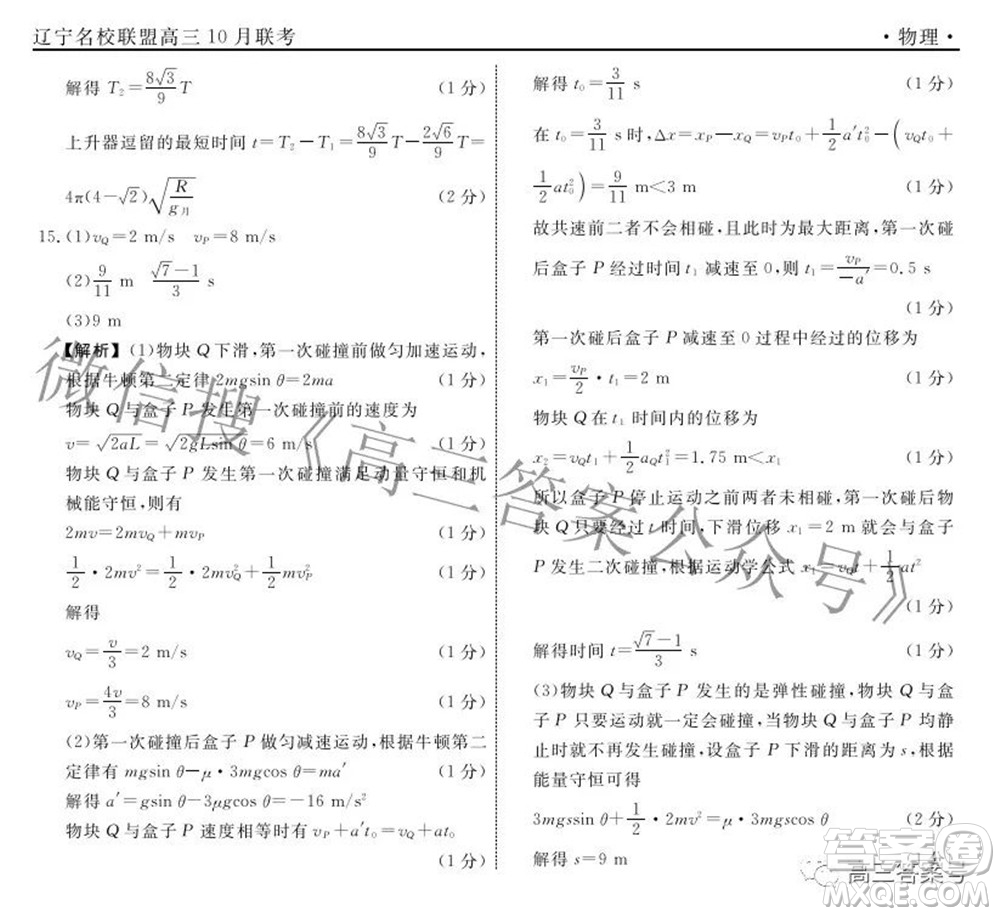 辽宁名校联盟高三10月联考
·物理·
解得 T₂=8√3/9 T (1分)
上升器逗留的最短时间 t=T₂-T₁=8√3/9 T-2√6/9 T=
4π(4-√2)√(R/g月) (2分)
15.(1)v_Q=2 m/s v_P=8 m/s
(2)9/11 m (√7-1)/3 s
(3)9 m
【解析】(1)物块Q下滑,第一次碰撞前做匀加速运动,
根据牛顿第二定律 2mgsin θ=2ma (1分)
物块Q与盒子P发生第一次碰撞前的速度为
v=√(2aL)=√(2gLsin θ)=6 m/s (1分)
物块Q与盒子P发生第一次碰撞满足动量守恒和机
械能守恒,则有
2mv=2mv_Q+mv_P (1分)
1/2·2mv²=1/2·2mv_Q²+1/2 mv_P² (1分)
解得
v_Q=v/3=2 m/s (1分)
v_P=4v/3=8 m/s (1分)
(2)第一次碰撞后盒子P做匀减速运动,根据牛顿第二
定律有 mgsin θ-μ·3mgcos θ=ma′ (1分)
解得 a′=gsin θ-3μgcos θ=-16 m/s²
物块Q与盒子P速度相等时有 v_P+a′t₀=v_Q+at₀
(1分)
解得 t₀=3/11 s (1分)
在 t₀=3/11 s时,Δx=x_P-x_Q=v_Pt₀+1/2 a′t₀²-(v_Qt₀+
1/2 at₀²)=9/11 m<3 m (1分)
故共速前二者不会相碰,此时有最大距离,第一次碰
后盒子P经过时间 t₁ 减速至0,则 t₁=v_P/-a′=0.5 s
(1分)
第一次碰后盒子P减速至0过程中经过的位移为
x₁=v_P/2·t₁=2 m (1分)
物块Q在 t₁ 时间内的位移为
x₂=v_Qt₁+1/2 a_Qt₁²=1.75 m<x₁ (1分)
所以盒子P停止运动之前两者未相碰,第一次碰后物
块Q只要经过t时间,下滑位移 x₁=2 m 就会与盒子
P发生二次碰撞,根据运动学公式 x₁=v_Qt+1/2 at²
(1分)
解得时间 t=(√7-1)/3 s (1分)
(3)物块Q与盒子P发生的是弹性碰撞,物块Q与盒
子P只要运动就一定会碰撞,当物块Q与盒子P均静
止时就不再发生碰撞,设盒子P下滑的距离为s,根据
能量守恒可得
3mgssin θ+1/2·2mv²=μ·3mgscos θ (2分)
解得 s=9 m (1分)
微信搜《高三答案公众号》
高三答案号
答案圈
MXQE.COM